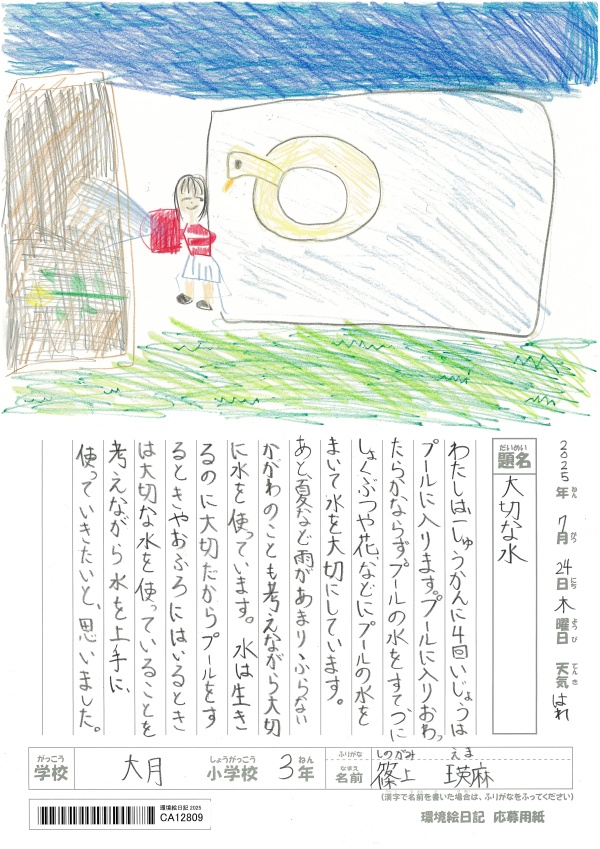 2025年ねん 7月がつ 24日にち 木曜日ようび 天気てんき はれ
だいめい
題名
大切な水
わたしは一しゅうかんに4回いじょうは
プールに入ります。プールに入りおわっ
たらかならず、プールの水をすてずに
しょくぶつや花などにプールの水を
まいて水を大切にしています。
あと、夏など雨があまりふらない
かがわのことも考えながら大切
に水を使っています。水は生き
るのに大切だからプールをす
るときやおふろにはいるとき
は大切な水を使っていることを
考えながら水を上手に、
使っていきたいと、思いました。
がっこう
学校
大月
しょうがっこう
小学校
3
ねん
年
ふりがな
しのがみ えま
なまえ
名前
篠上 瑛麻
(漢字で名前を書いた場合は、ふりがなをふってください)
環境絵日記 2025
CA12809
環境絵日記 応募用紙